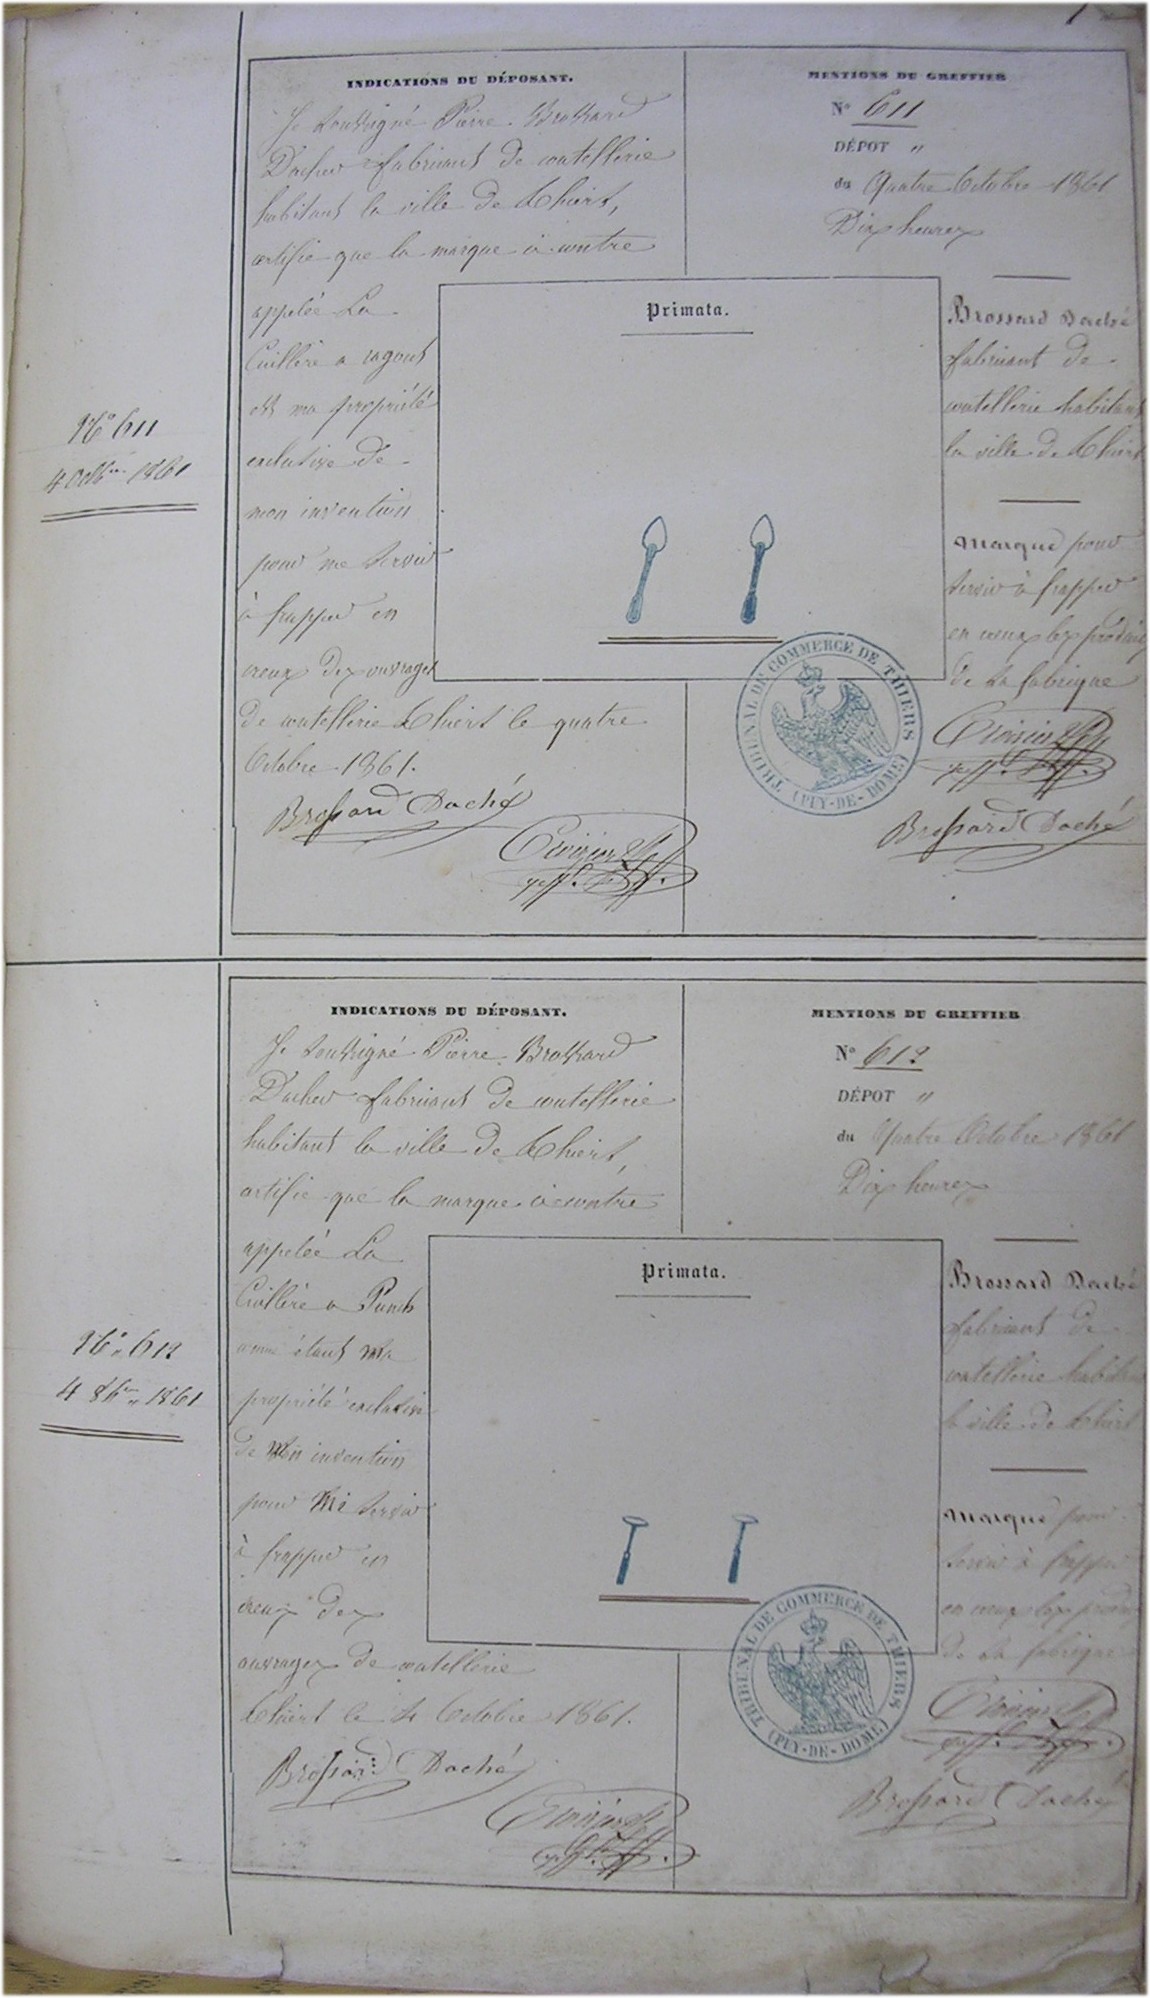 1
N° 611
4 Octbre 1861
INDICATIONS DU DÉPOSANT.
Je soussigné Pierre Brossard
Daché fabricant de coutellerie
habitant la ville de Thiers,
certifie que la marque ci contre
appelée La
Cuillère a ragout
est ma propriété
exclusive de
mon invention
pour me servir
à frapper en
creux des ouvrages
de coutellerie Thiers le quatre
Octobre 1861.
Brossard Daché
MENTIONS DU GREFFIER
N° 611
DÉPOT "
du Quatre Octobre 1861
Dix heures
Primata.
Brossard Daché
fabricant de
coutellerie habitant
la ville de Thiers
Marque pour
servir à frapper
en creux les produits
de sa fabrique
Brossard Daché
TRIBUNAL DE COMMERCE DE THIERS
(PUY-DE-DOME)
N° 612
4 8bre 1861
INDICATIONS DU DÉPOSANT.
Je soussigné Pierre Brossard
Daché fabricant de coutellerie
habitant la ville de Thiers,
certifie que la marque ci contre
appelée La
Cuillère a Punch
comme étant ma
propriété exclusive
de mon invention
pour me servir
à frapper en
creux des
ouvrages de coutellerie
Thiers le 4 Octobre 1861.
Brossard Daché
MENTIONS DU GREFFIER
N° 612
DÉPOT "
du Quatre Octobre 1861
Dix heures
Primata.
Brossard Daché
fabricant de
coutellerie habitant
la ville de Thiers
Marque pour
servir à frapper
en creux les produits
de sa fabrique
Brossard Daché
TRIBUNAL DE COMMERCE DE THIERS
(PUY-DE-DOME)